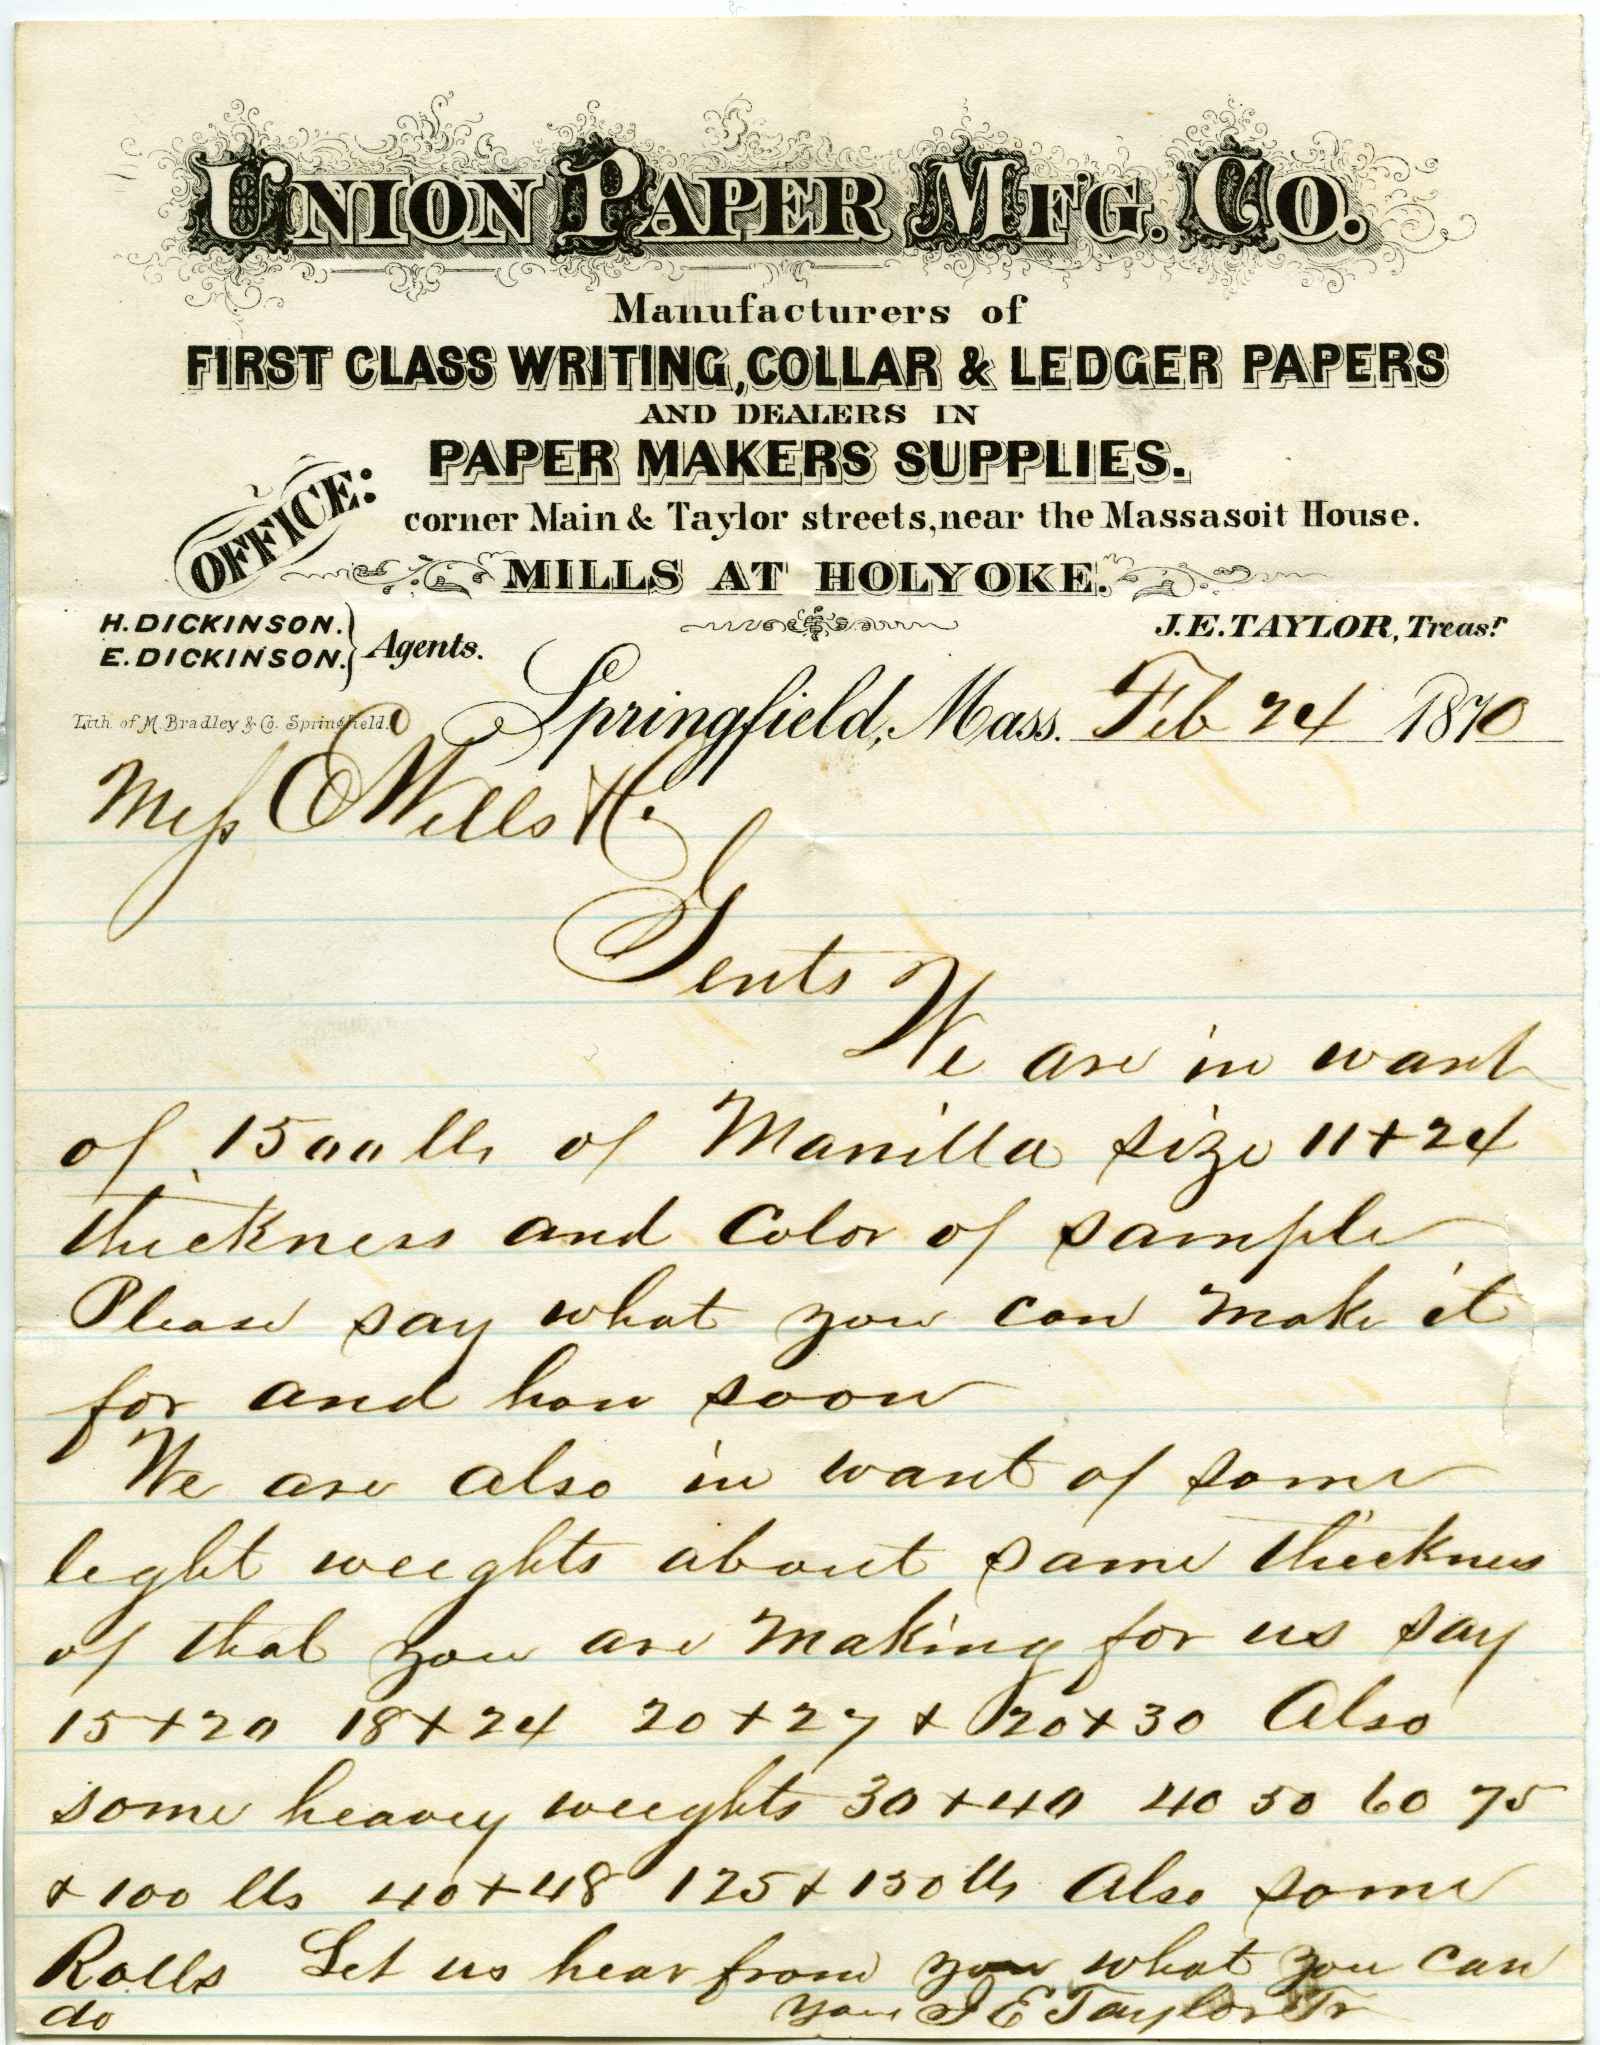 UNION PAPER MFG. CO.
Manufacturers of
FIRST CLASS WRITING, COLLAR & LEDGER PAPERS
AND DEALERS IN
PAPER MAKERS SUPPLIES.
OFFICE:
corner Main & Taylor streets, near the Massasoit House.
MILLS AT HOLYOKE.
H. DICKINSON.
E. DICKINSON.
Agents.
J. E. TAYLOR, Treasr.
Lith. of M. Bradley & Co. Springfield.
Springfield, Mass. Feb 24 1870
Mess Wells
Gents
We are in want
of 1500 lbs of Manilla size 11+24
thickness and color of sample
Please say what you can make it
for and how soon
We are also in want of some
light weights about same thickness
of that you are making for us say
15+20 18+24 20+27 & 20+30 Also
some heavy weights 30+40 40 50 60 75
& 100 lbs 40+48 125 & 150 lbs Also some
Rolls Let us hear from you what you can
do
Yours J E Taylor Tr